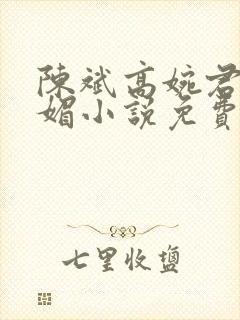 陳斌高婉君
媚小說免費
七里收鹽